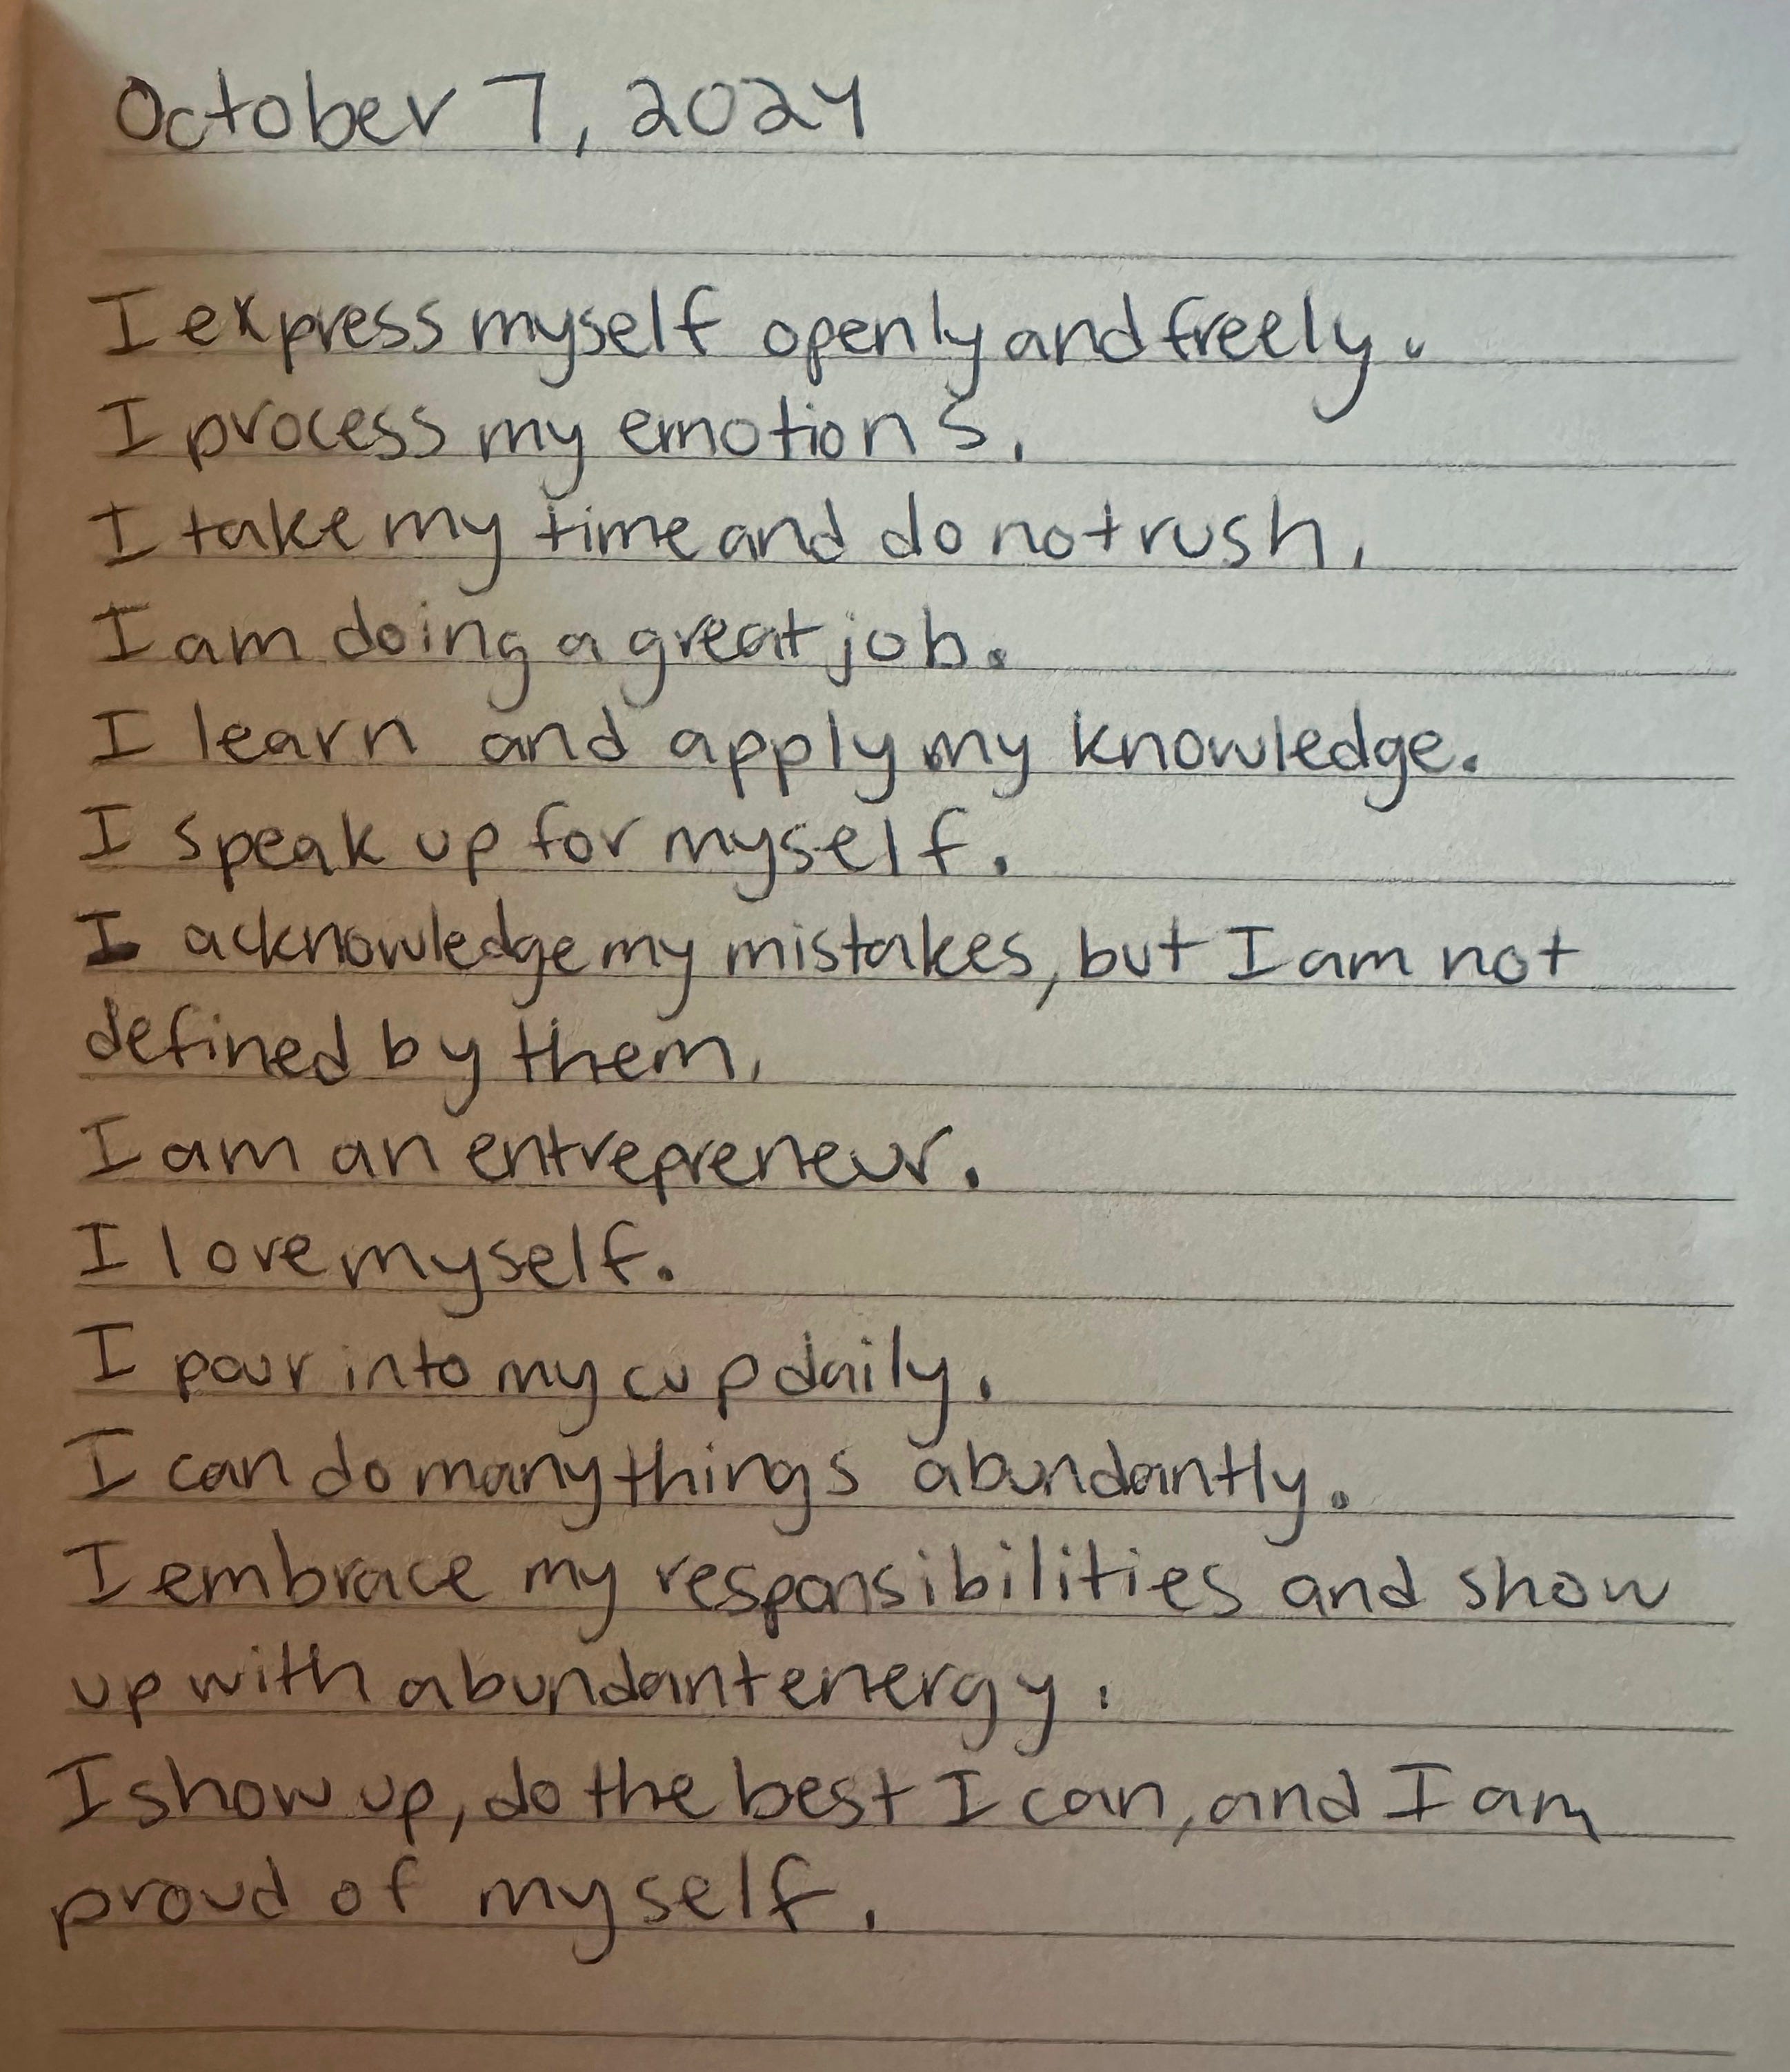 October 7, 2024
I express myself openly and freely.
I process my emotions.
I take my time and do not rush.
I am doing a great job.
I learn and apply my knowledge.
I speak up for myself.
I acknowledge my mistakes, but I am not
defined by them.
I am an entrepreneur.
I love myself.
I pour into my cup daily.
I can do many things abundantly.
I embrace my responsibilities and show
up with abundant energy.
I show up, do the best I can, and I am
proud of myself.